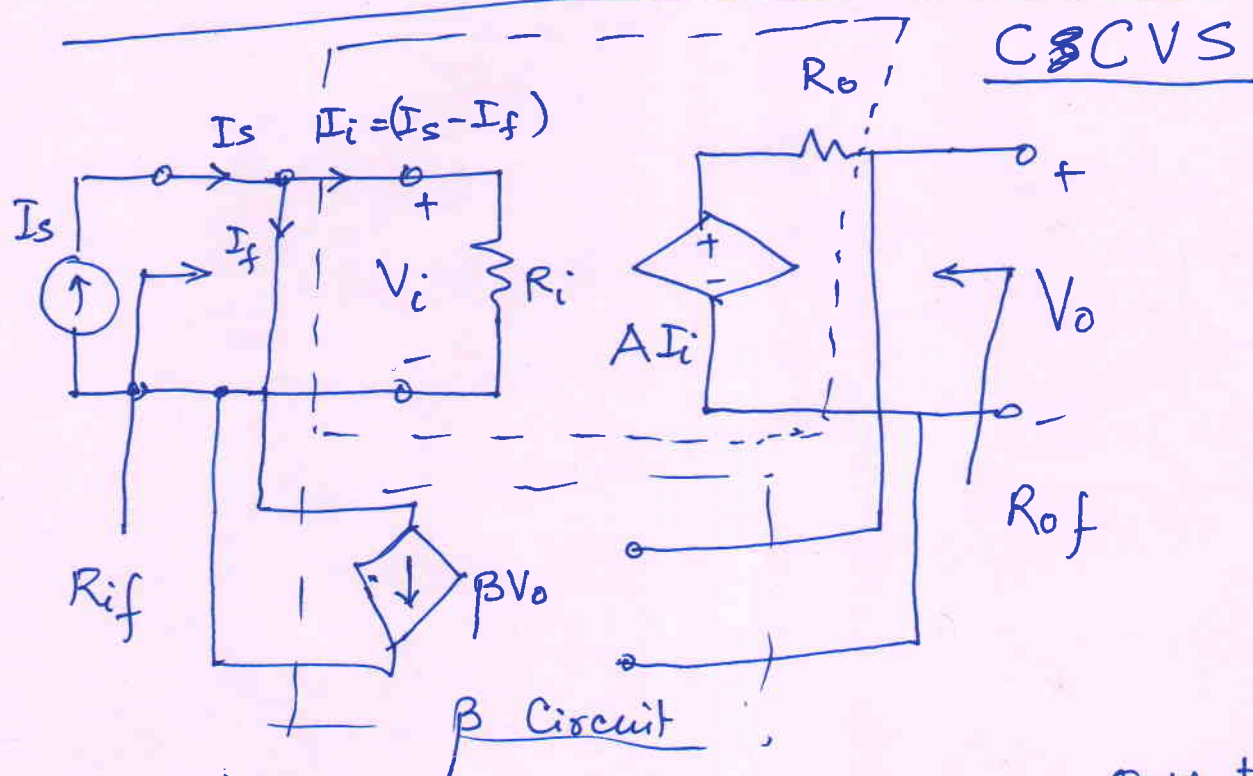 CCVS
R₀
Is Iᵢ = (Is - If)
+ +
Is If Vᵢ Rᵢ + - V₀
AIᵢ
- -
R₀f
Rif βV₀
β Circuit